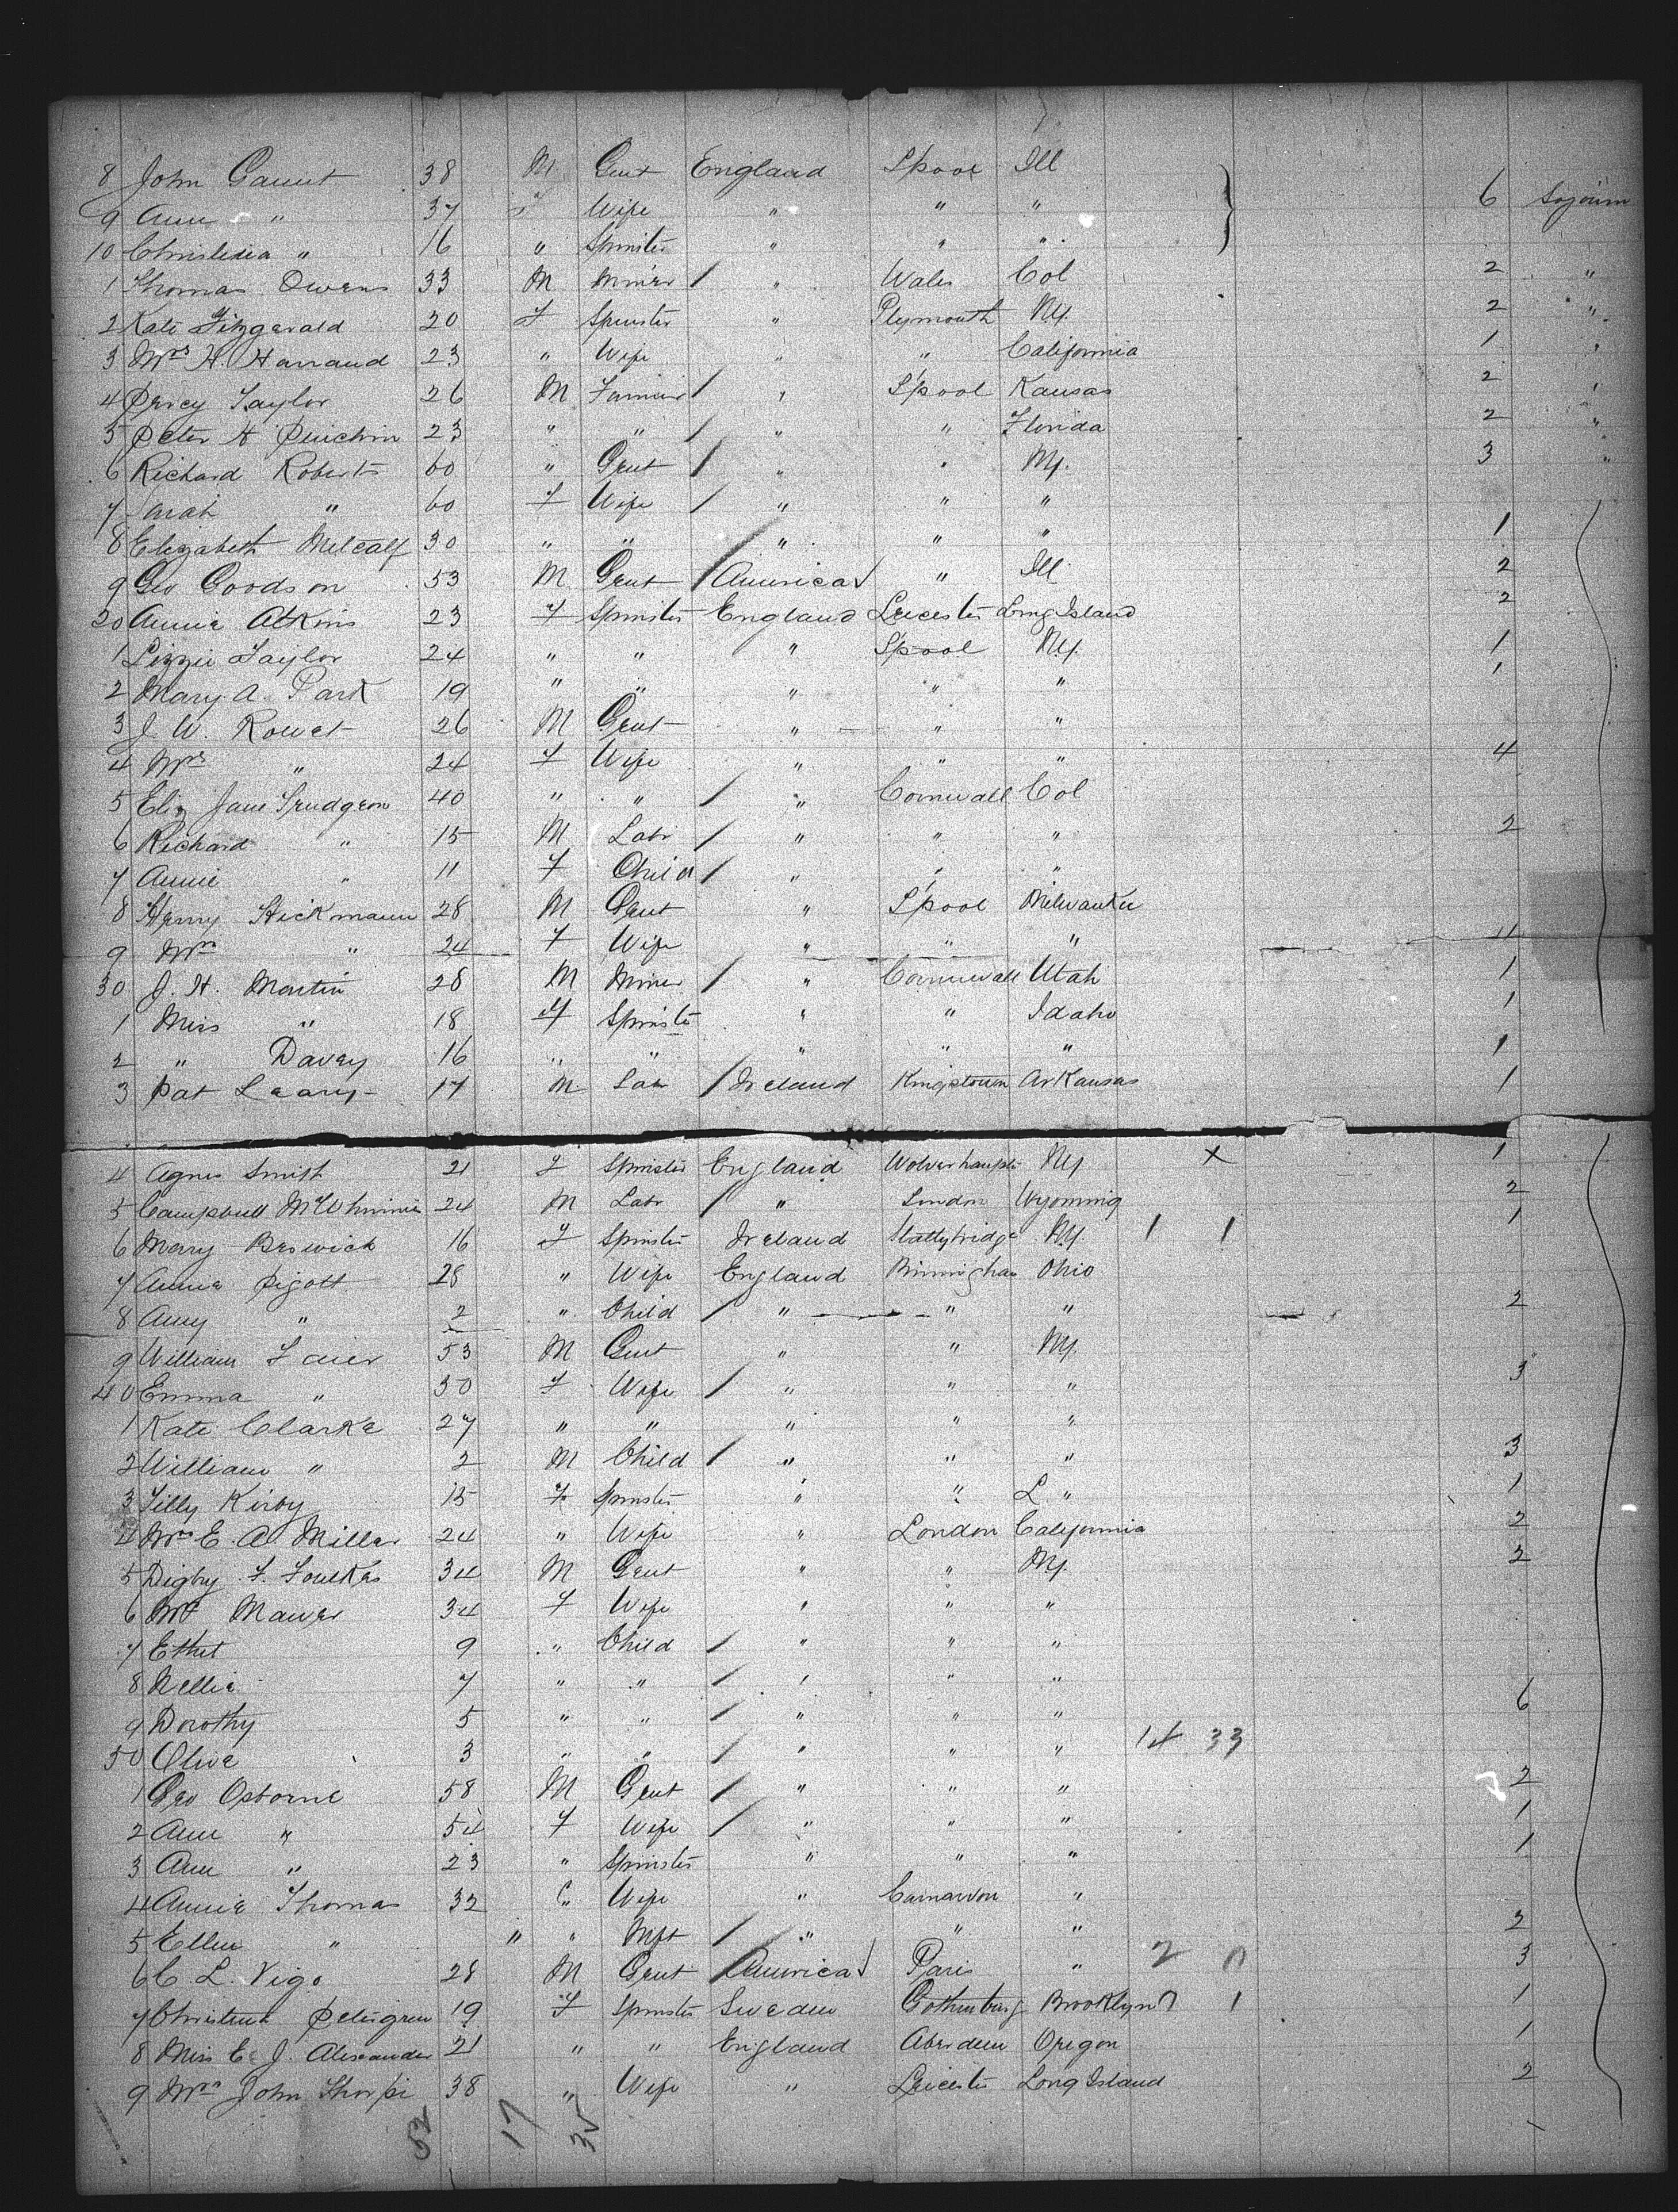 8 John Gaunt 38 M Gent England L'pool Ill
9 Ann " 37 F Wife " " " 6 Sojourn
10 " 16 " Spinster " " "
1 Thomas Owens 33 M Miner / " Wales Col 2 "
2 Kate Fitzgerald 20 F Spinster " Plymouth Ny. 2 "
3 Mrs H. Harraud 23 " Wife " " California 1 "
4 Percy Taylor 26 M Farmer / " L'pool Kansas 2 "
5 Peter H 23 " " / " " Florida 2 "
6 Richard Roberts 60 " Gent / " " Ny. 3 "
7 Sarah " 60 F Wife / " " "
8 Elizabeth Metcalf 30 " " / " " " 1
9 Geo Goodson 53 M Gent / America " Ill 2
20 Annie Atkins 23 F Spinster England Leicester Long Island 2
1 Lizzie Taylor 24 " " " L'pool Ny. 1
2 Mary A. Park 19 " " " " " 1
3 J. W. Rowet 26 M Gent " " "
4 Mrs " 24 F Wife " " " 4
5 Eliz Jane Trudgeon 40 " " / " Cornwall Col
6 Richard " 15 M Labr / " " " 2
7 Annie " 11 F Child / " " "
8 Henry Hickmann 28 M Gent " L'pool Milwaukee
9 Mrs " 24 F Wife " " " 4
30 J. H. Martin 28 M Miner / " Cornwall Utah 1
1 Miss " 18 F Spinster " " Idaho 1
2 " Davey 16 " " " " " 1
3 Pat Leary 17 M Labr / Ireland Kingstown Arkansas 1
4 Agnes Smith 21 F Spinster England Wolverhampt Ny x 1
5 Campbell McWhinnie 24 M Labr / " London Wyoming 2
6 Mary Beswick 16 F Spinster Ireland Stalybridge Ny. 1 1 1
7 Annie Pigott 28 " Wife England Birmingham Ohio
8 Amy " 2 " Child / " " " 2
9 William 53 M Gent " " Ny.
40 Emma " 30 F Wife / " " " 3
1 Kate Clarke 27 " " " " "
2 William " 2 M Child / " " " 3
3 Tilly Kirby 15 F Spinster " " L " 1
4 Mrs E. A. Miller 24 " Wife " London California 2
5 Digby F. Foulkes 34 M Gent " " Ny. 2
6 Mrs Mawer 34 F Wife " " "
7 Ethel 9 " Child / " " "
8 Nellie 7 " " / " " "
9 Dorothy 5 " " / " " " 6
50 Olive 3 " " / " " " 14 33
1 Geo Osborne 58 M Gent / " " " 2
2 Ann " 54 F Wife / " " " 1
3 Ann " 23 " Spinster " " " 1
4 Annie Thomas 32 " Wife " Carnarvon "
5 Ellen " " " Inft / " " " 2
6 C L. Vigo 28 M Gent / America Paris " 2 0 3
7 19 F Spinster Sweden Gothenburg Brooklyn 1 1
8 Miss E J. Alexander 21 " " England Aberdeen Oregon 1
9 Mrs John Thorpe 38 " Wife " Leicester Long Island 2
52 17 35